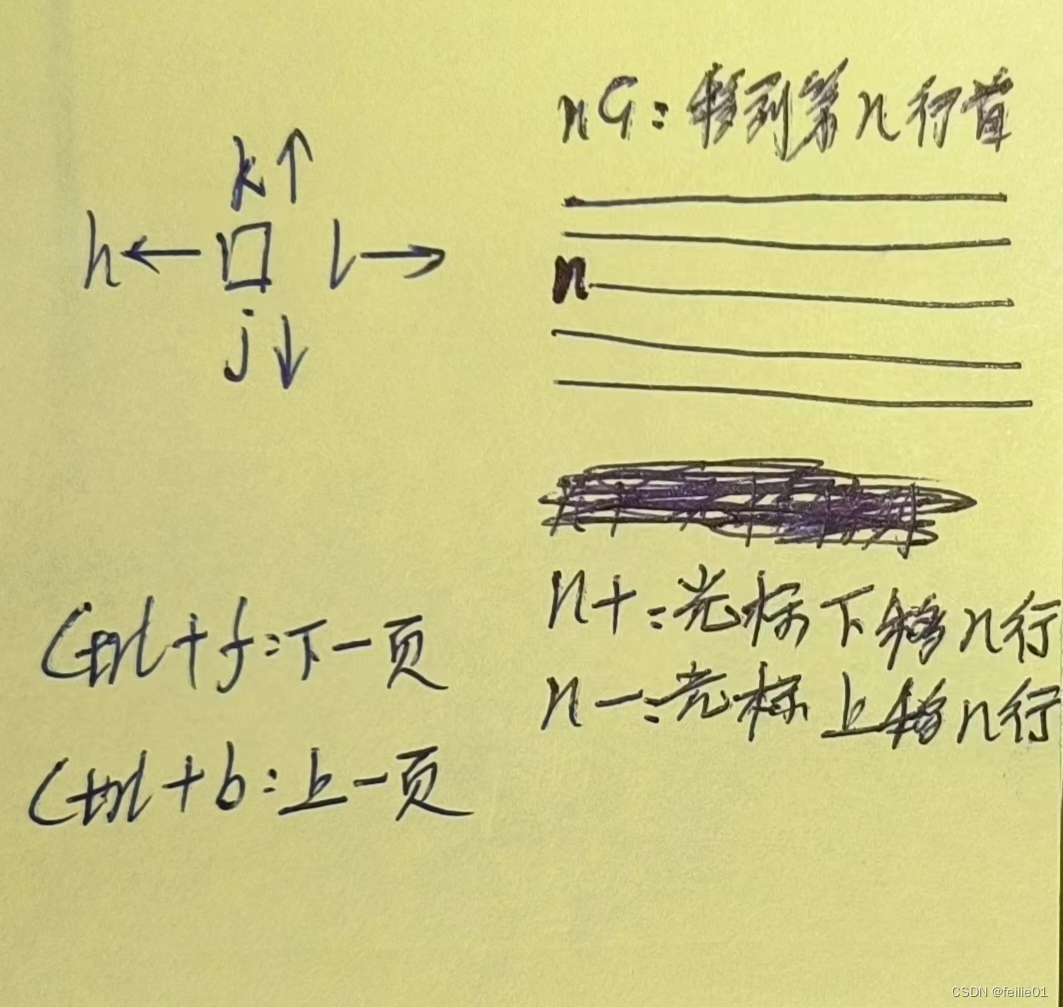 k↑
h← □ l→
j↓
Ctrl+f:下一页
Ctrl+b:上一页
nG:移到第n行首
n
n+:光标下移n行
n-:光标上移n行
CSDN @feilie01